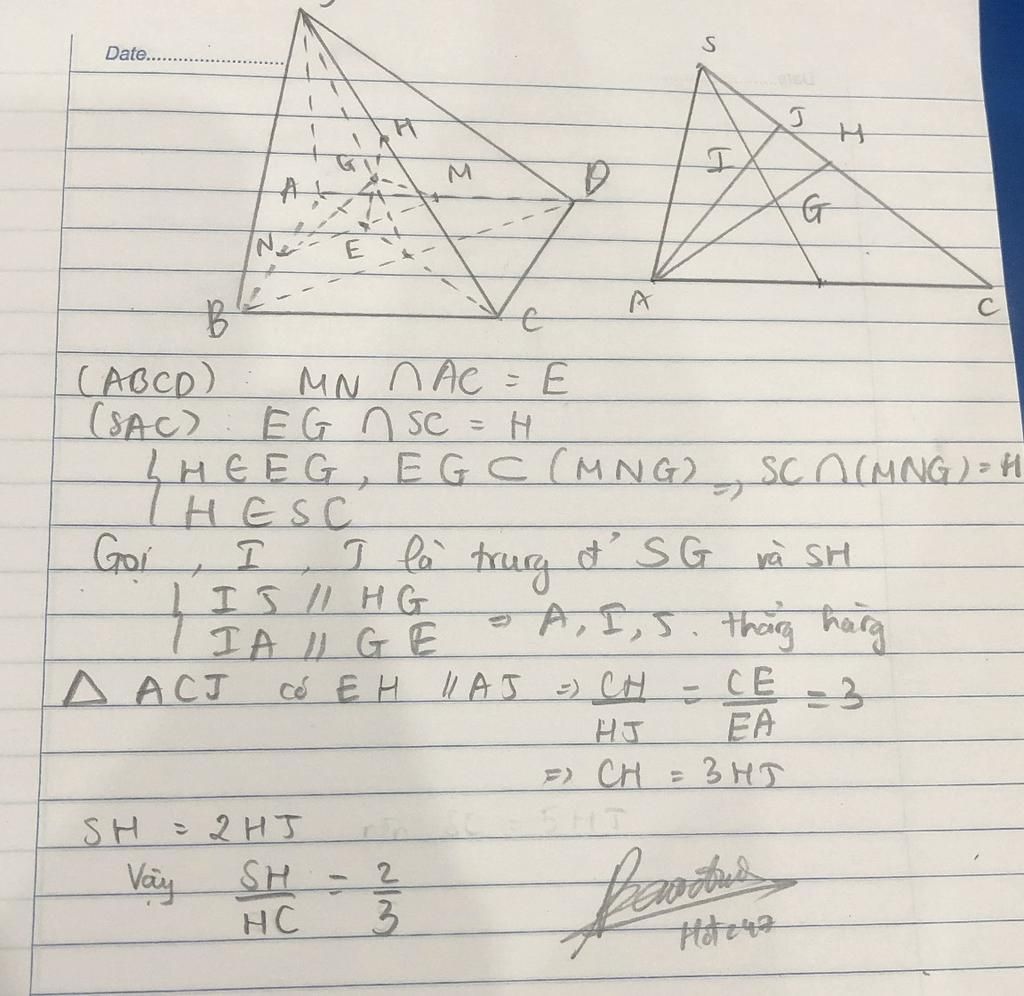 Date
S
H
G
M
A
D
N
E
B
C
S
J
H
I
G
A
C
(ABCD) : MN ∩ AC = E
(SAC) : EG ∩ SC = H
{ H ∈ EG, EG ⊂ (MNG) => SC ∩ (MNG) = H
H ∈ SC
Gọi, I, J là trung đ' SG và SH
{ IJ // HG
IA // GE => A, I, J. thẳng hàng
Δ ACJ có EH // AJ => CH/HJ = CE/EA = 3
=> CH = 3HJ
SH = 2HJ
Vậy SH/HC = 2/3